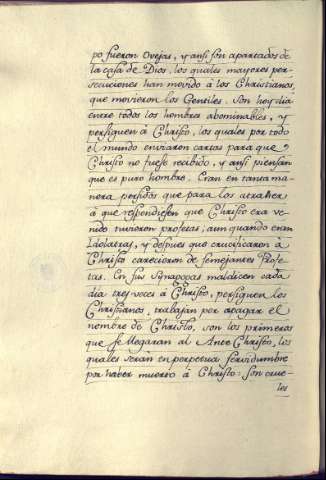 po fueron Ovejas, y ansi son apartados de
la casa de Dios, los quales mayores per-
secuciones han movido à los Christianos,
que movieron los Gentiles. Son hoy dia
entre todos los hombres abominables, y
persiguen à Christo, los quales por todo
el mundo enviaron cartas para que
Christo no fuese recibido, y ansi piensan
que es puro hombre. Eran en tanta ma-
nera perfidos que para los atraher
à que respondiesen que Christo era ve-
nido tuvieron profetas; aun quando eran
Idolatras, y despues que crucificaron à
Christo carecieron de semejantes Profe-
tas. En sus Synagogas maldicen cada
dia tres veces à Christo, persiguen los
Christianos, trabajan por apagar el
nombre de Christo, son los primeros
que se llegaran al Ante Christo, los
quales serán en perpetua servidumbre
por haber muerto à Christo: son crue-
les